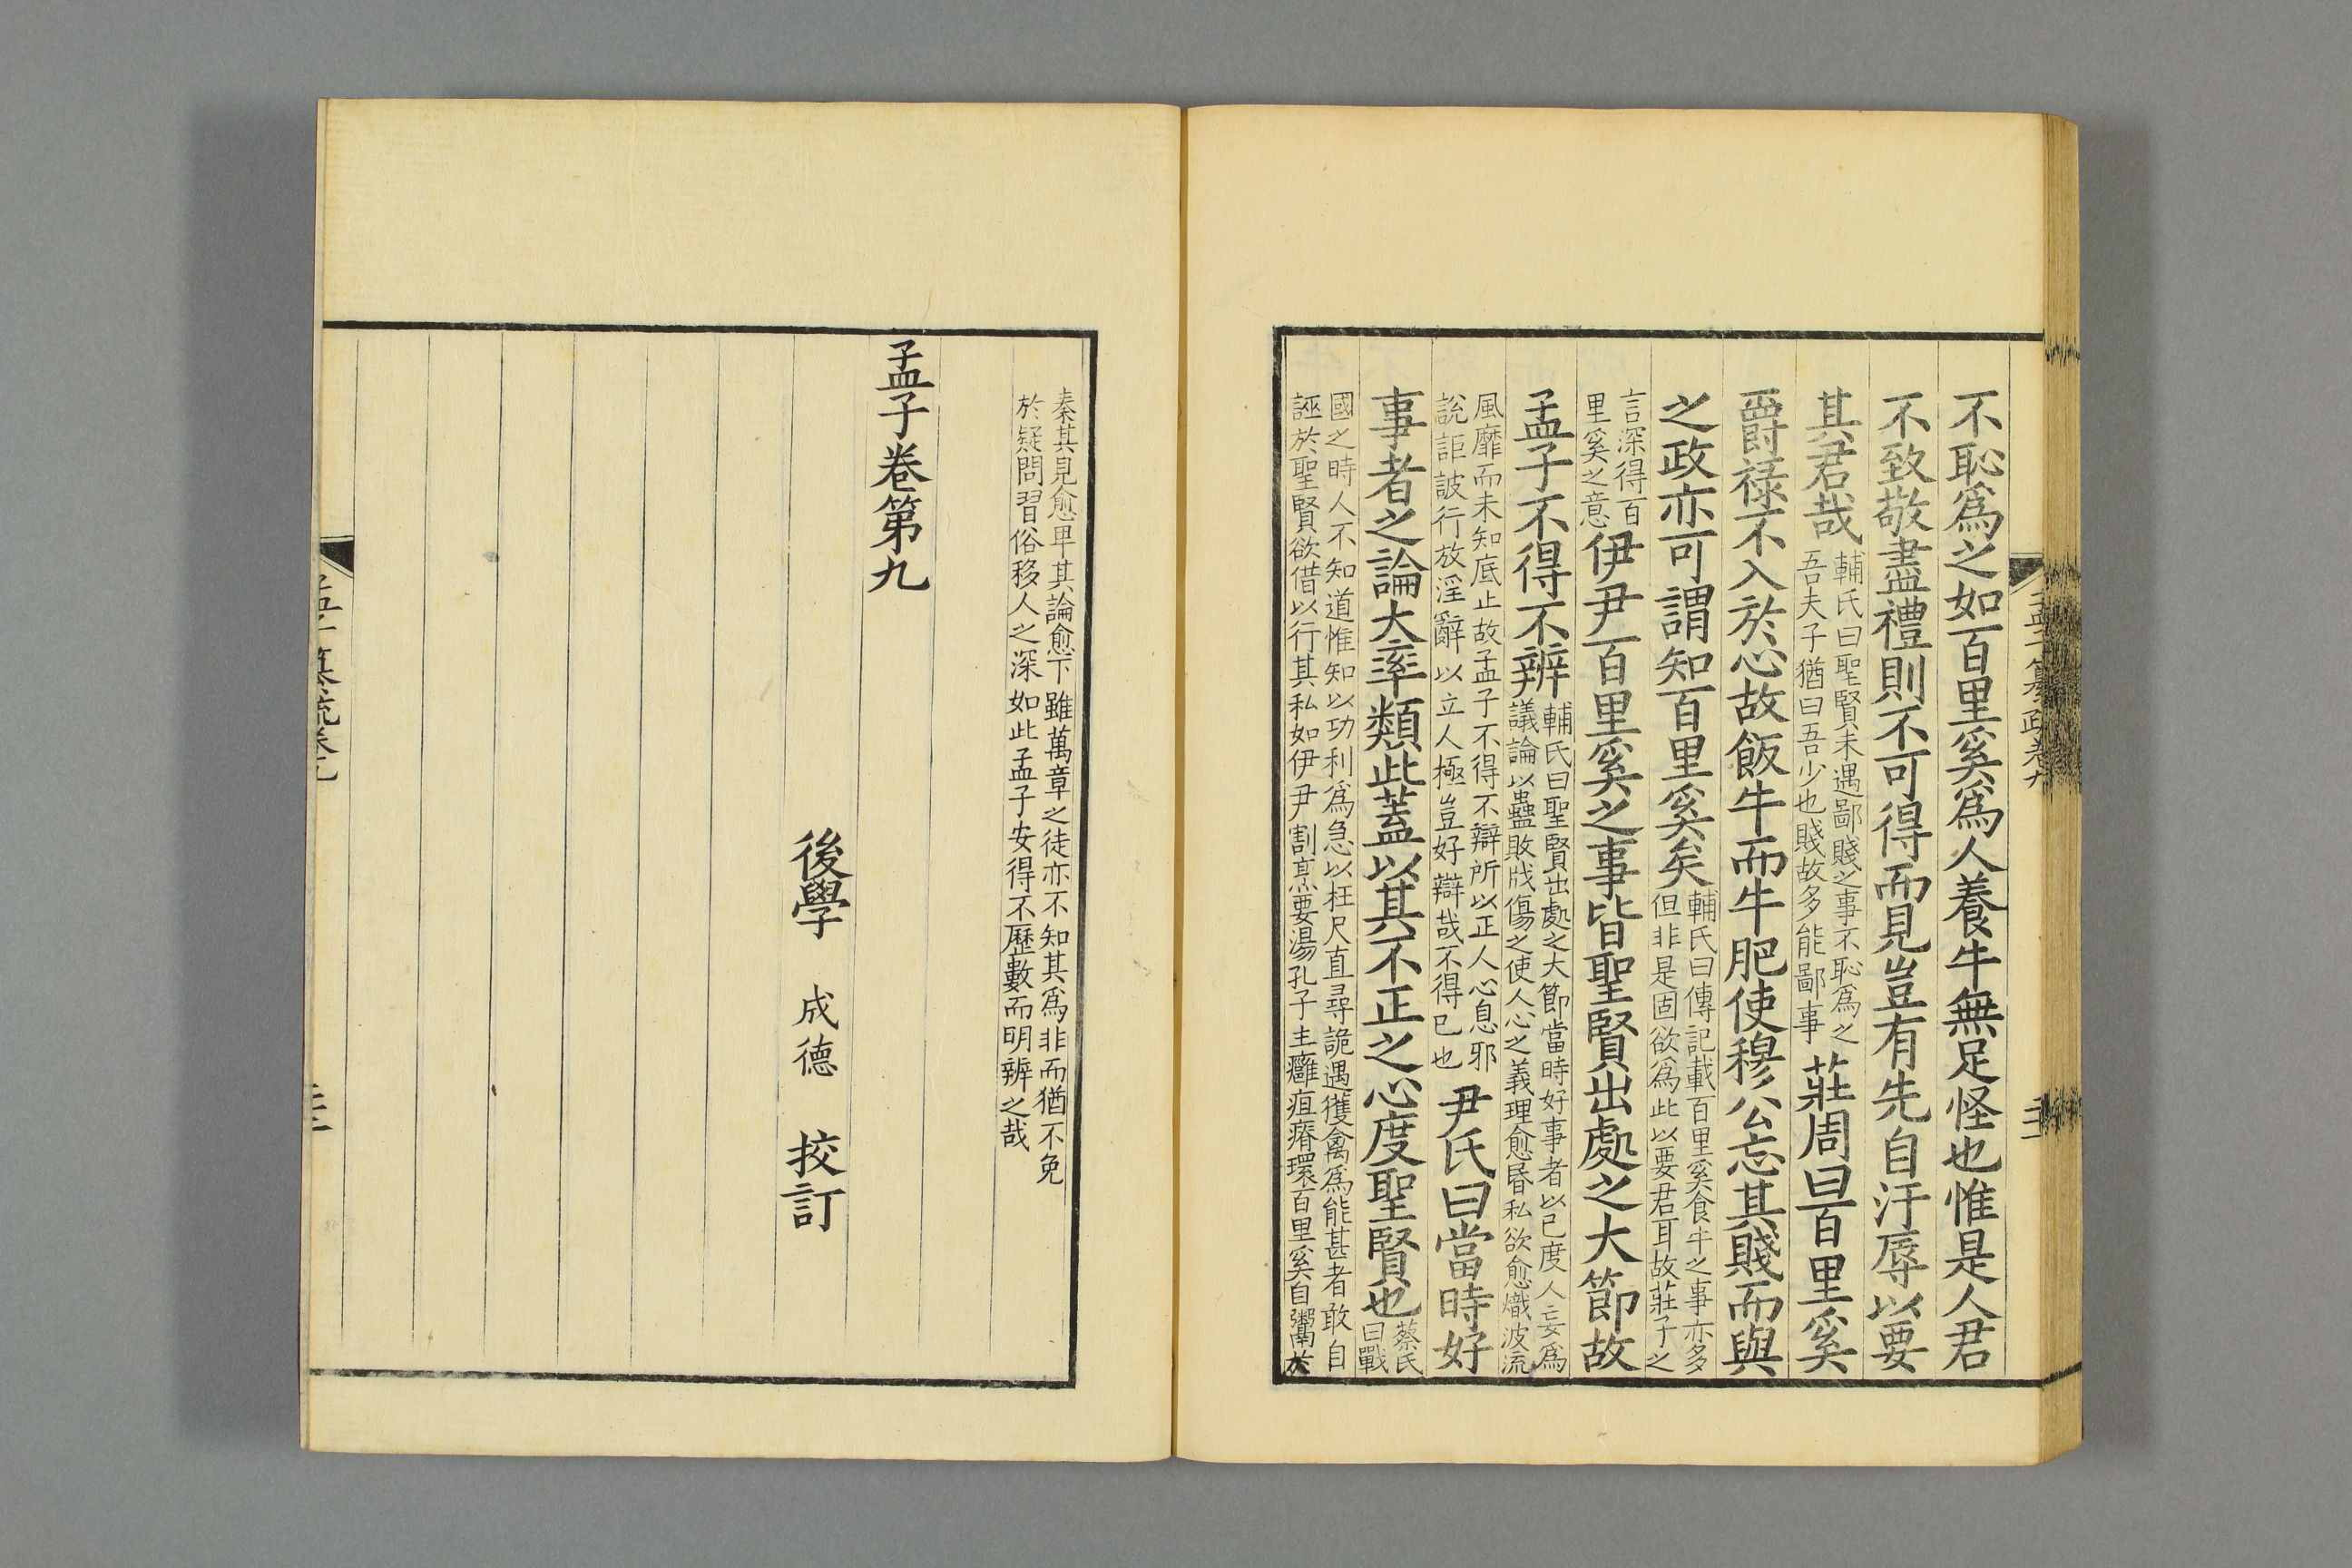 不恥爲之如百里奚爲人養牛無足怪也惟是人君
不致敬盡禮則不可得而見豈有先自汙辱以要
其君哉輔氏曰聖賢未遇鄙賤之事不恥爲之
吾夫子猶曰吾少也賤故多能鄙事莊周曰百里奚
爵祿不入於心故飯牛而牛肥使穆公忘其賤而與
之政亦可謂知百里奚矣輔氏曰傳記載百里奚食牛之事亦多
但非是固欲爲此以要君耳故莊子之
言深得百
里奚之意伊尹百里奚之事皆聖賢出處之大節故
孟子不得不辨輔氏曰聖賢出處之大節當時好事者以己度人妄爲
議論以蠱敗戕傷之使人心之義理愈昬私欲愈熾波流
風靡而未知底止故孟子不得不辯所以正人心息邪
說詎詖行放淫辭以立人極豈好辯哉不得已也尹氏曰當時好
事者之論大率類此蓋以其不正之心度聖賢也蔡氏
曰戰
國之時人不知道惟知以功利爲急以枉尺直尋詭遇獲禽爲能甚者敢自
誣於聖賢欲借以行其私如伊尹割烹要湯孔子主癰疽瘠環百里奚自鬻於
孟子纂疏卷九
秦其見愈卑其論愈下雖萬章之徒亦不知其爲非而猶不免
於疑問習俗移人之深如此孟子安得不歷數而明辨之哉
孟子卷第九
後學 成德 挍訂
孟子纂疏卷九